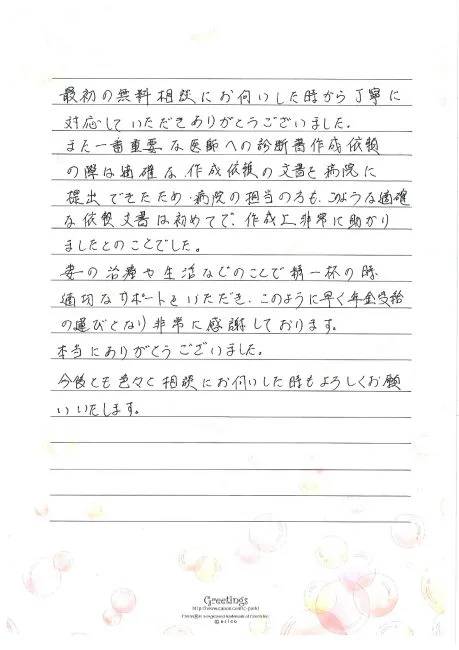 最初の無料相談にお伺いした時から丁寧に
対応していただきありがとうございました。
また一番重要な医師への診断書作成依頼
の際は適確な、作成依頼の文書を病院に
提出できたため、病院の担当の方も、このような適確
な依頼文書は初めてで、作成上非常に助かり
ましたとのことでした。
妻の治療や生活などのことで精一杯の時、
適切なサポートをいただき、このように早く年金受給
の運びとなり非常に感謝しております。
本当にありがとうございました。
今後とも色々と相談にお伺いした時もよろしくお願
いいたします。
Greetings
http://www.canon.com/c-park/
© erico